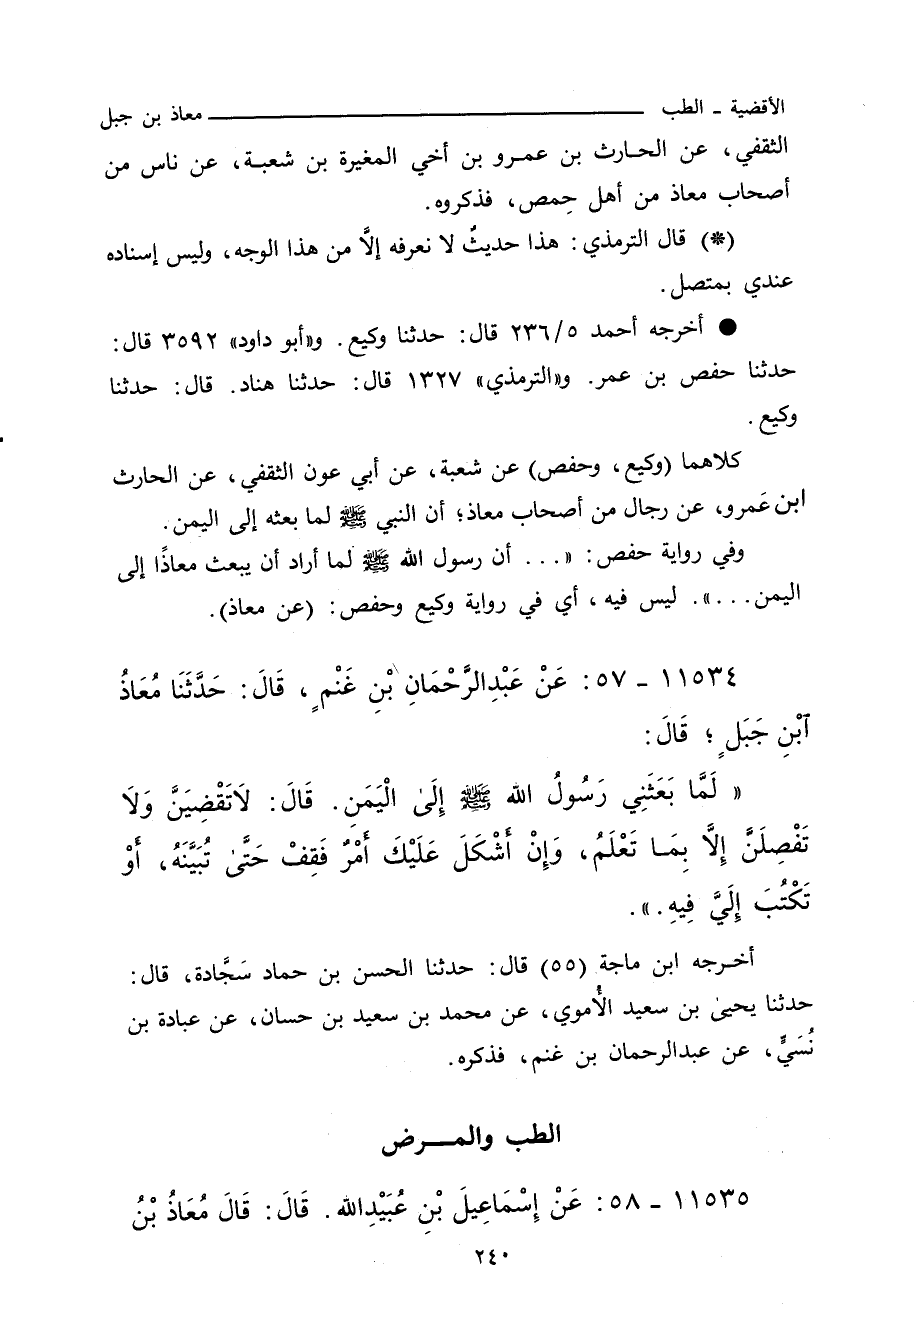 الأقضية ـ الطب ــــــــــــــــــــــــــــــــــــــــ معاذ بن جبل
الثقفي، عن الحـارث بن عمـرو بن أخي المغيرة بن شعبـة، عن ناس من
أصحاب معاذ من أهل حِمص، فذكروه.
(*) قال الترمذي: هذا حديثٌ لا نعرفه إلاَّ من هذا الوجه، وليس إسناده
عندي بمتصل.
● أخرجه أحمد ٥/ ٢٣٦ قال: حدثنا وكيع. و«أبو داود» ٣٥٩٢ قال:
حدثنا حفص بن عمر. و«الترمذي» ١٣٢٧ قال: حدثنا هناد. قال: حدثنا
وكيع.
كلاهما (وكيع، وحفص) عن شعبة، عن أبي عون الثقفي، عن الحارث
ابن عَمرو، عن رجال من أصحاب معاذ؛ أن النبي ﷺ لما بعثه إلى اليمن.
وفي رواية حفص: «... أن رسول الله ﷺ لما أراد أن يبعث معاذًا إلى
اليمن...». ليس فيه، أي في رواية وكيع وحفص: (عن معاذ).
١١٥٣٤ ـ ٥٧: عَنْ عَبْدِالرَّحْمَانِ بْنِ غَنْمٍ، قَالَ: حَدَّثَنَا مُعَاذُ
آبْنِ جَبَلٍ؛ قَالَ:
« لَمَّا بَعَثَنِي رَسُولُ الله ﷺ إِلَىٰ الْيَمَنِ. قَالَ: لاَتَقْضِيَنَّ وَلَا
تَفْصِلَنَّ إِلَّا بِمَـا تَعْلَمُ، وَإِنْ أَشْكَلَ عَلَيْكَ أَمْرٌ فَقِفْ حَتَّىٰ تُبَيِّنَهُ، أَوْ
تَكْتُبَ إِلَيَّ فِيهِ.».
أخـرجه ابن ماجة (٥٥) قال: حدثنا الحسن بن حماد سَجَّادة، قال:
حدثنا يحيىٰ بن سعيد الأُموي، عن محمد بن سعيد بن حسان، عن عبادة بن
نُسَيٍّ، عن عبدالرحمان بن غنم، فذكره.
الطب والمـــرض
١١٥٣٥ ـ ٥٨: عَنْ إِسْمَاعِيلَ بْنِ عُبَيْدِالله. قَالَ: قَالَ مُعَاذُ بْنُ
٢٤٠